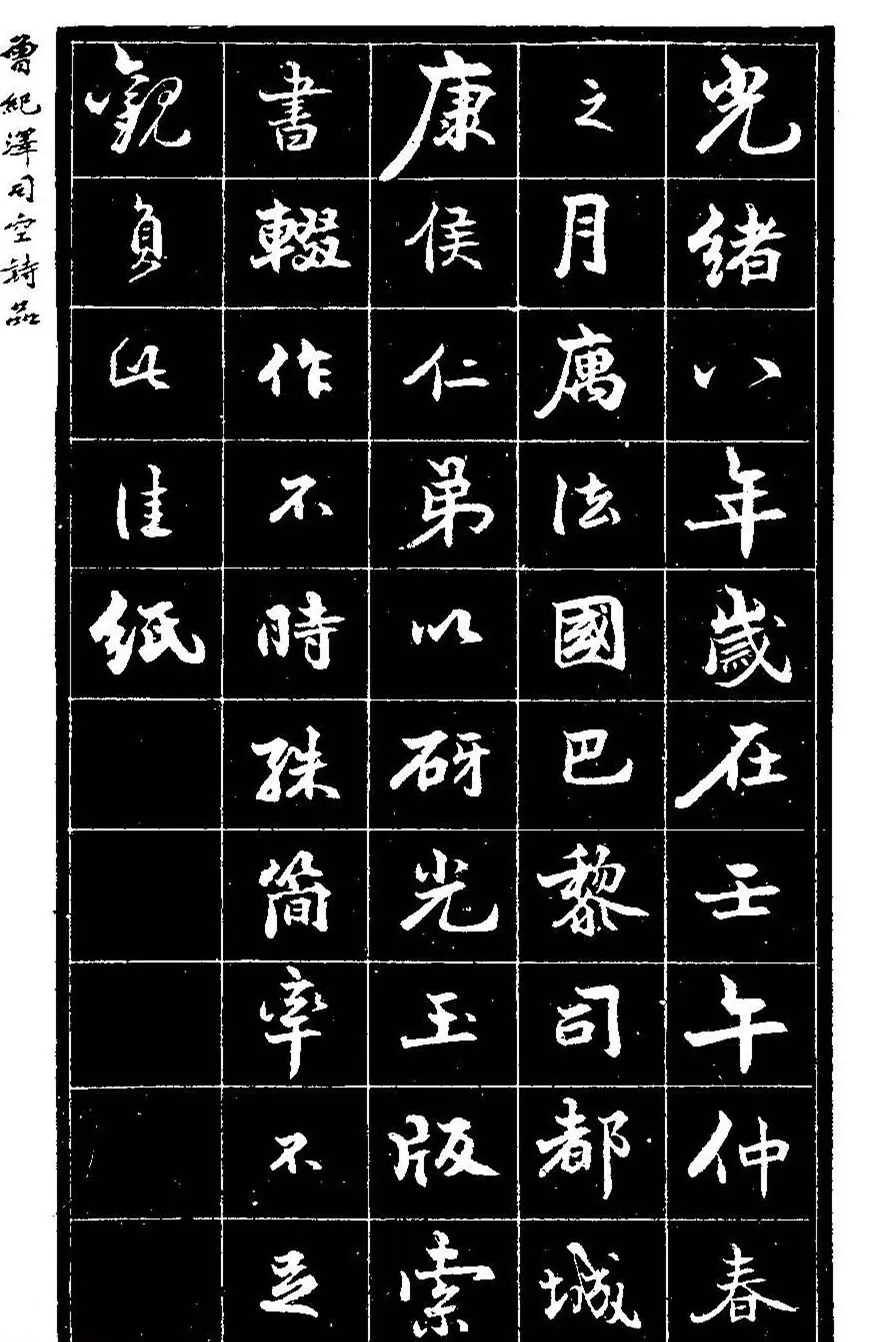 光緒八年歲在壬午仲春
之月寓法國巴黎司都城
康侯仁弟以砑光玉版索
書輟作不時殊簡率不足
觀負此佳紙
曾紀澤司空詩品